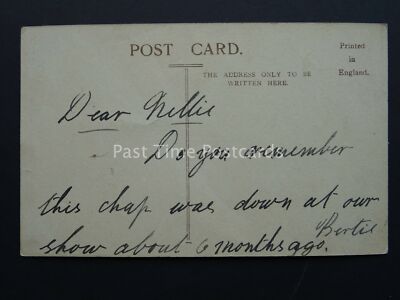 POST CARD.
Printed
in
England.
THE ADDRESS ONLY TO BE
WRITTEN HERE.
Dear Nellie
Do you remember
Past Time Postcards
this chap was down at our
show about 6 months ago.
Bertie